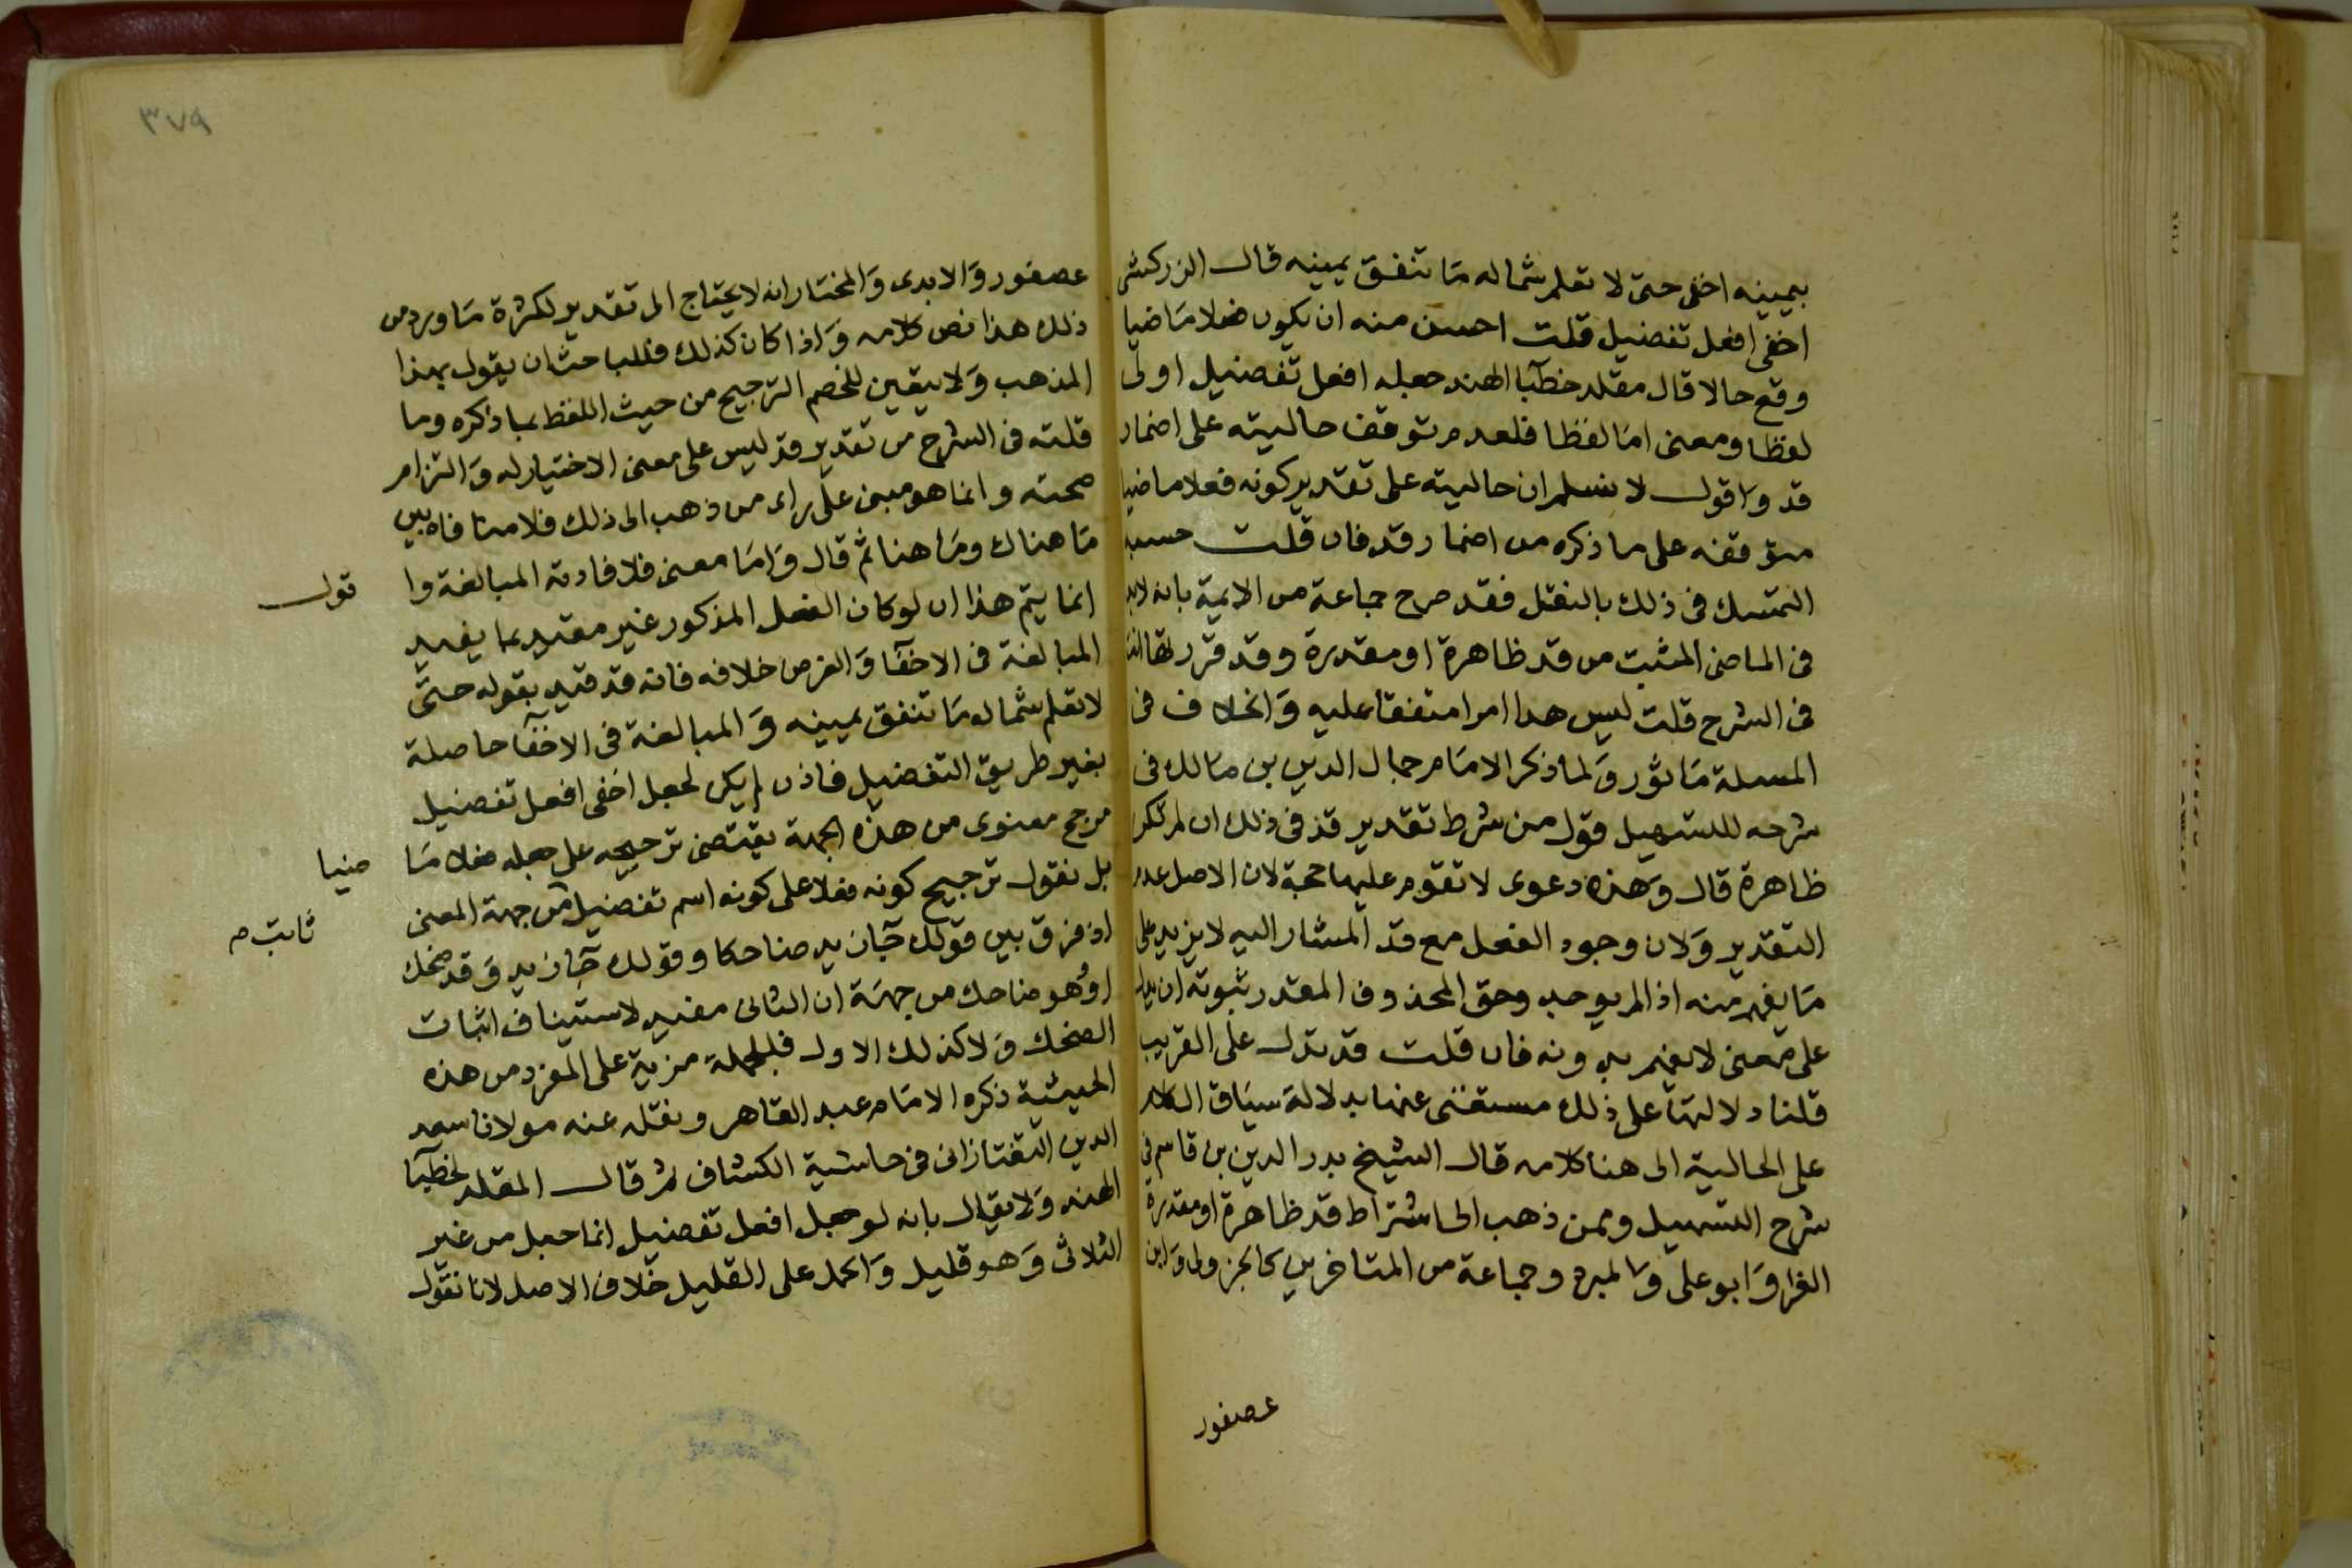 بيمينه اخفى حتى لا تعلم شماله مَا تنفق يمينه قال الزركشى
اخفى افعل تفضيل قلت احسن منه ان يكون فعلا مَاضيا
وقع حالا قال مقلد خطبَا الهند جعله افعل تفضيل اولى
لفظا ومعنى امَا لفظا فلعدم توقف حاليته على اضمار
قد واقول لا نسلم ان حاليته على تقدير كونه فعلا ماضيا
متوقفه على ما ذكره من اضمار قد فان قلت حسبه
التمسك فى ذلك بالنقل فقد صرح جماعة من الايمة بانه لابد
فى الماضى المثبت من قد ظاهرة او مقدرة وقد قرر
فى الشرح قلت ليس هدا امرا متفقا عليه وَالخلاف فى
المسلة مَاثور وَلما ذكر الامَام جمال الدين بن مالك فى
شرحه للتسهيل قول من شرط تقدير قد فى ذلك ان لم تكن
ظاهرة قال وَهذه دعوى لا تقوم عليها حجة لان الاصل عدم
التقدير وَلان وجود الفعل مع قد المشار اليه لا يزيد على
مَا يفهم منه اذا لم يوجد وحق المحذوف المقدر ثبوته ان يدل
على معنى لا يفهم بدونه فان قلت قد تدل على القريب
قلنا دلالتها على ذلك مستغنى عنها بدلالة سيَاق الكلام
على الحالية الى هنا كلامه قال الشيخ بدر الدين بن قاسم فى
شرح التسهيل وممن ذهب الى اشتراط قد ظاهرة او مقدرة
الفرا وَابو على وَالمبرد وجماعة من المتاخرين كالجزولى وَابن
عصفور
٣٧٩
عصفور وَالابدى وَالمختار انه لا يحتاج الى تقدير لكثرة مَا ورد من
ذلك هذا نص كلامه وَاذا كان كذلك فللباحث ان يقول بهذا
المذهب وَلا يتعين للخصم الترجيح من حيث اللفظ بما ذكره وما
قلته فى الشرح من تقدير قد ليس على معنى الاختيار له وَالتزام
صحته وانما هو مبنى على راى من ذهب الى ذلك فلا منافاه بين
مَا هناك ومَا هنا ثم قال وَامَا معنى فلافادته المبالغة وا قول
انما يتم هذا ان لو كان الفعل المذكور غير مقيد بما يفيد
المبالغة فى الاخفَا وَالفرض خلافه فانه قد قيد بقوله حتى
لا تعلم شماله مَا تنفق يمينه وَالمبالغة فى الاخفَا حاصلة
بغير طريق التفضيل فاذن لم يكن لجعل اخفى افعل تفضيل
مرجح معنوى من هذه الجهة يقتضى ترجيحه على جعله فعلا مَا ضيا
بل نقول ترجيح كونه فعلا على كونه اسم تفضيل من جهة المعنى ثابت م
اذ فرق بين قولك جَا زيد ضاحكا وقولك جَا زيد وَقد ضحك
اوهو ضاحك من جهَة ان الثانى مفيد لاستيناف اثبات
الضحك وَلا كذلك الاول فللجملة مزية على المفرد من هذه
الحيثية ذكره الامَام عبد القاهر ونقله عنه مولانا سعد
الدين التفتازانى فى حاشية الكشاف ثم قال المقلد لخطبَا
الهند وَلا يقال بانه لو جعل افعل تفضيل انما جعل من غير
الثلاثى وَهو قليل وَالحمل على القليل خلاف الاصل لانا نقول